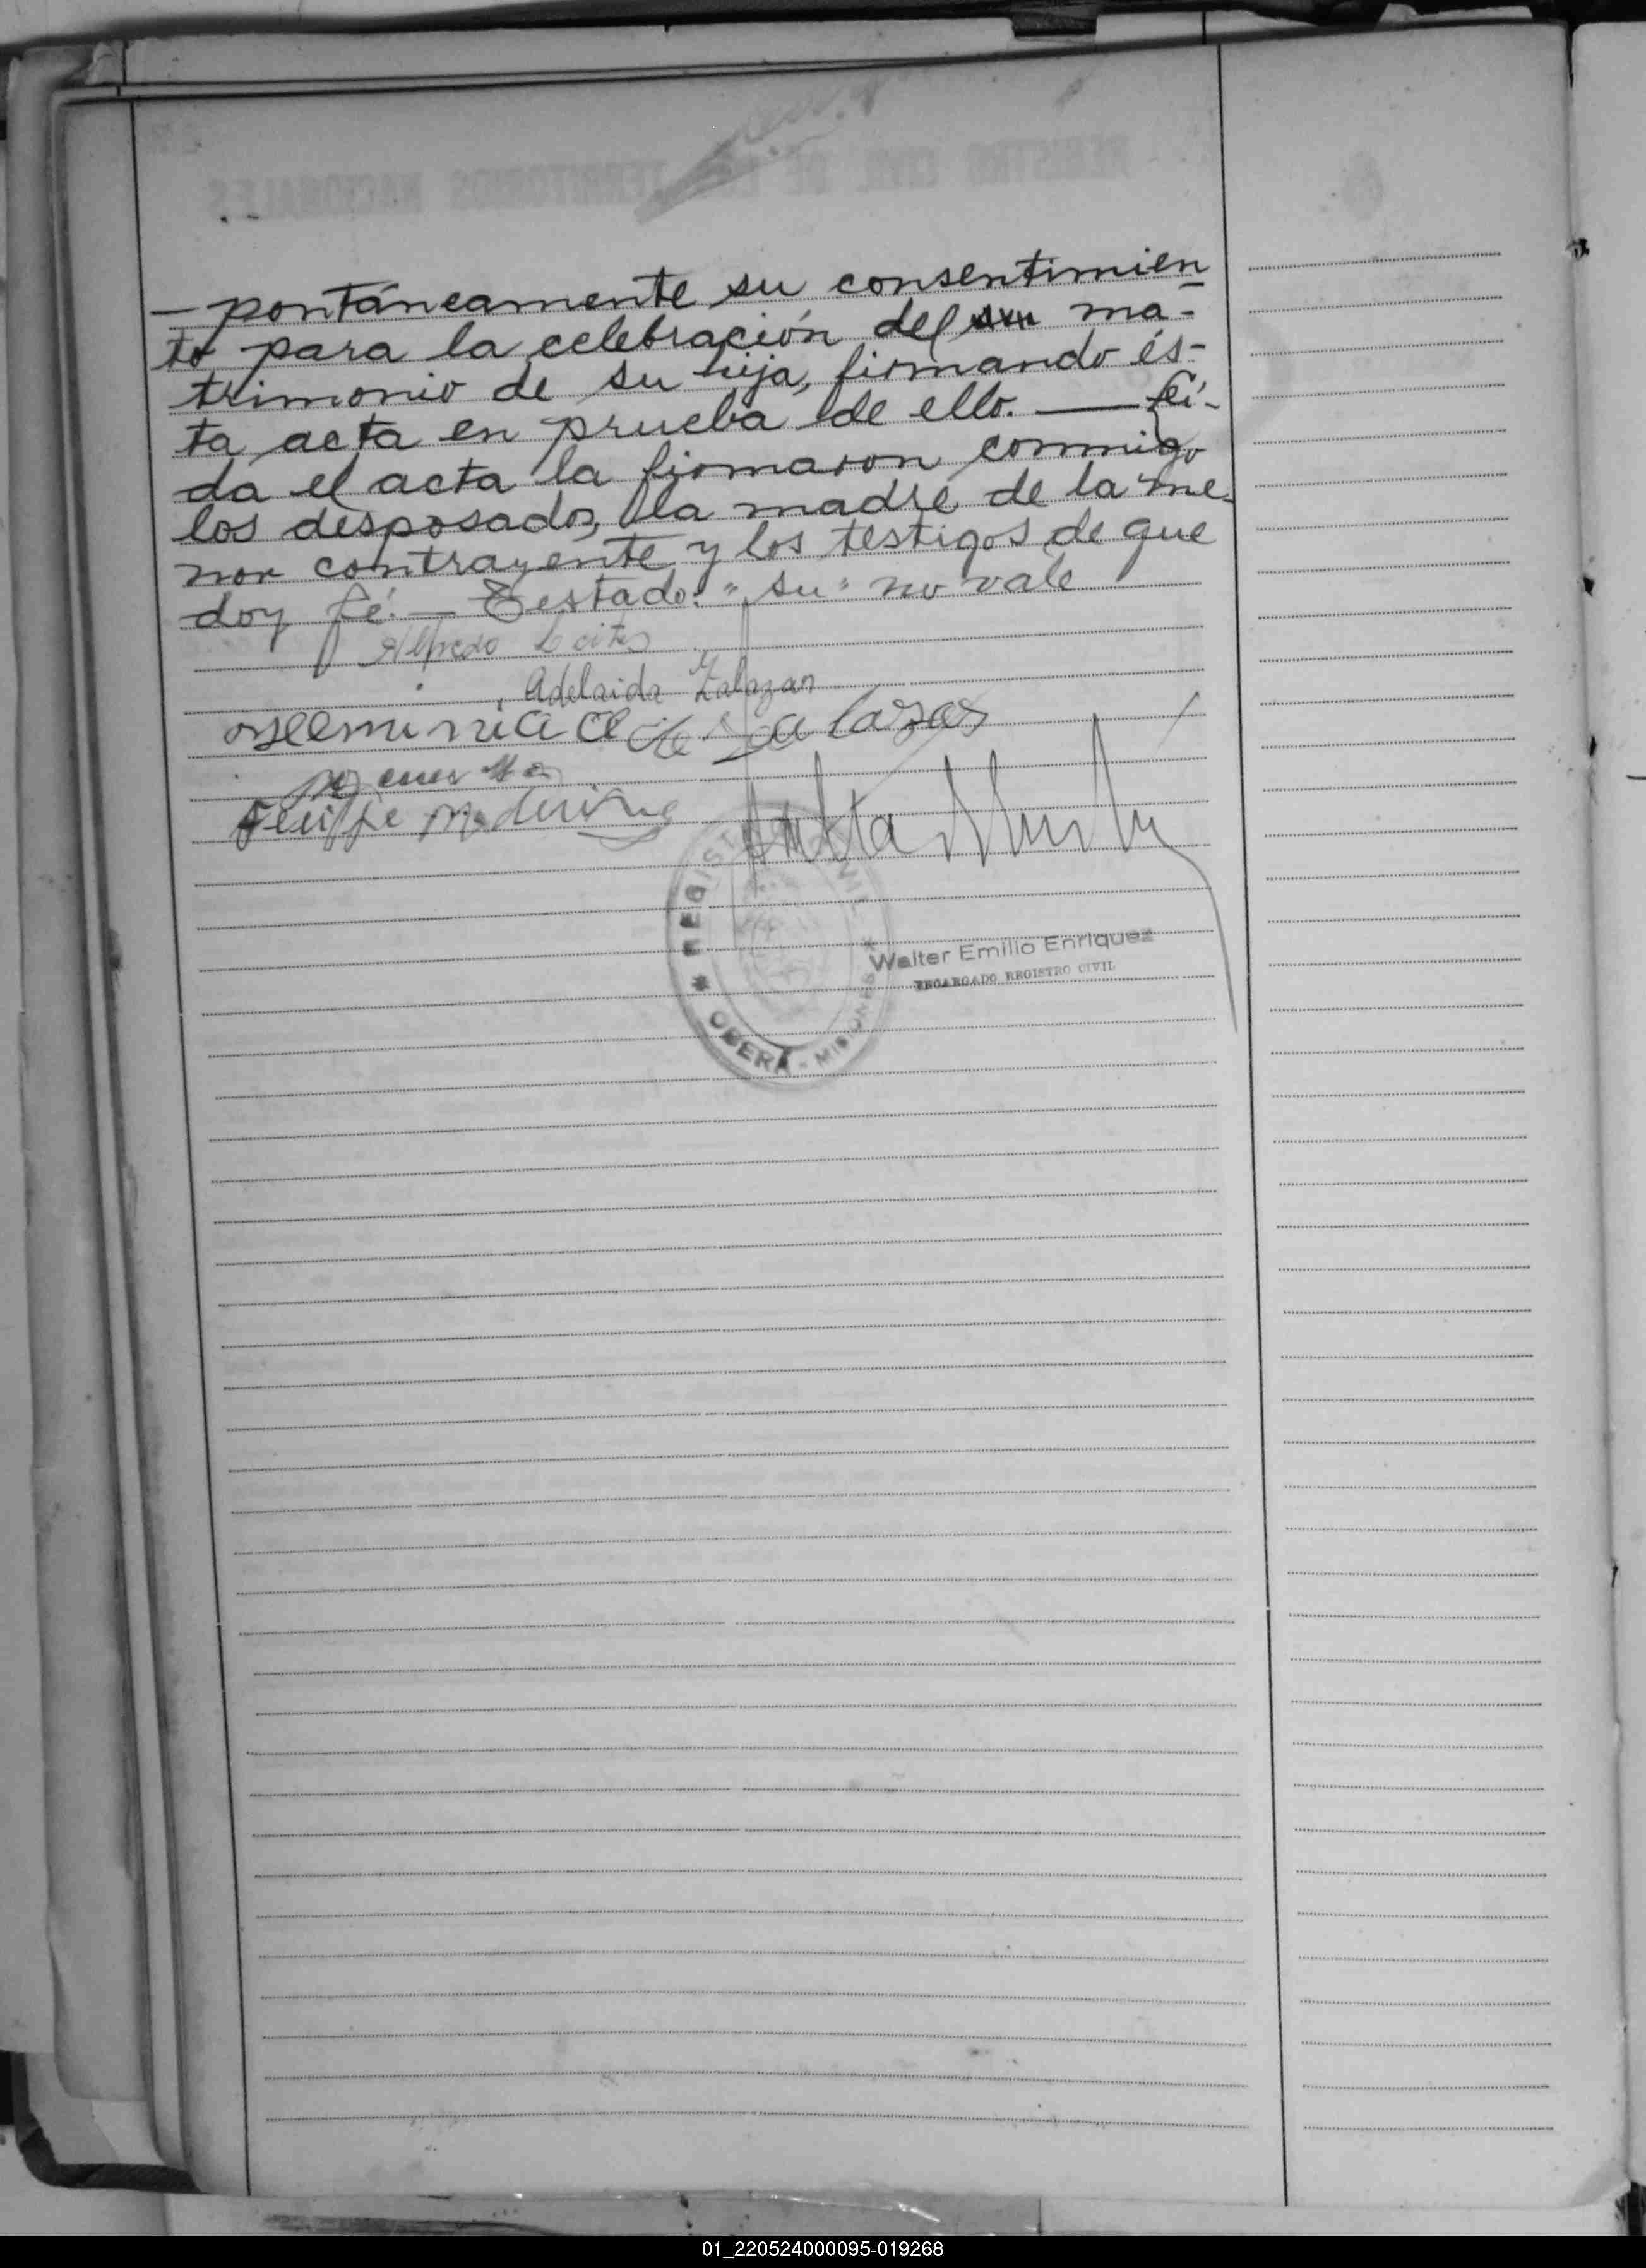 – pontáneamente su consentimien
to para la celebración del su ma-
trimonio de su hija, firmando és-
ta acta en prueba de ello. — Leí-
da el acta la firmaron conmigo
los desposados, la madre de la me-
nor contrayente y los testigos de que
doy fé. — Testado: "su" no vale
Alfredo Leites
Adelaida Zalazar
de Salazar
Felipe
* REGISTRO CIVIL *
OBERÁ - MISIONES
Walter Emilio Enriquez
ENCARGADO REGISTRO CIVIL
REGISTRO CIVIL DE LOS TERRITORIOS NACIONALES
01_220524000095-019268